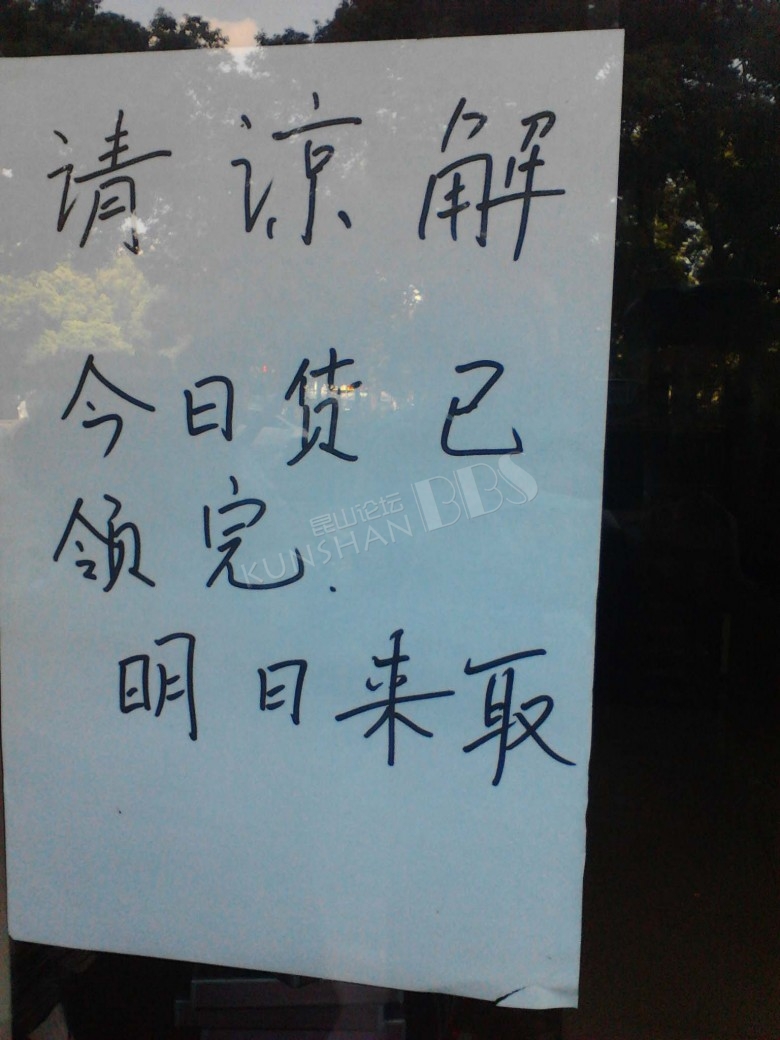 请谅解
今日货已
领完.
昆山论坛 BBS
KUNSHAN
明日来取